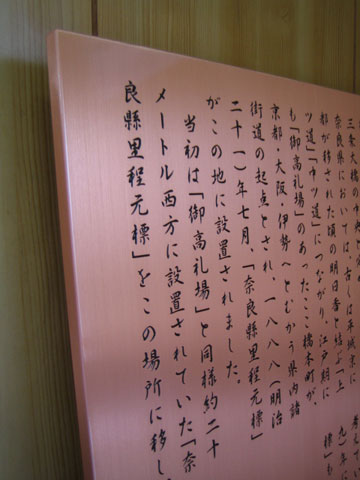 考えてい
九)年に
標」も
三条大橋の中央
奈良県においては、古くは平城京に
都が移された頃の明日香と結ぶ「上
ツ道」「中ツ道」につながり、江戸期に
も「御高札場」のあったここ橋本町が、
京都・大阪・伊勢へとむかう県内諸
街道の起点とされ、一八八八(明治
二十一)年七月、「奈良縣里程元標」
がこの地に設置されました。
当初は「御高札場」と同様約二十
メートル西方に設置されていた「奈
良縣里程元標」をこの場所に移し、